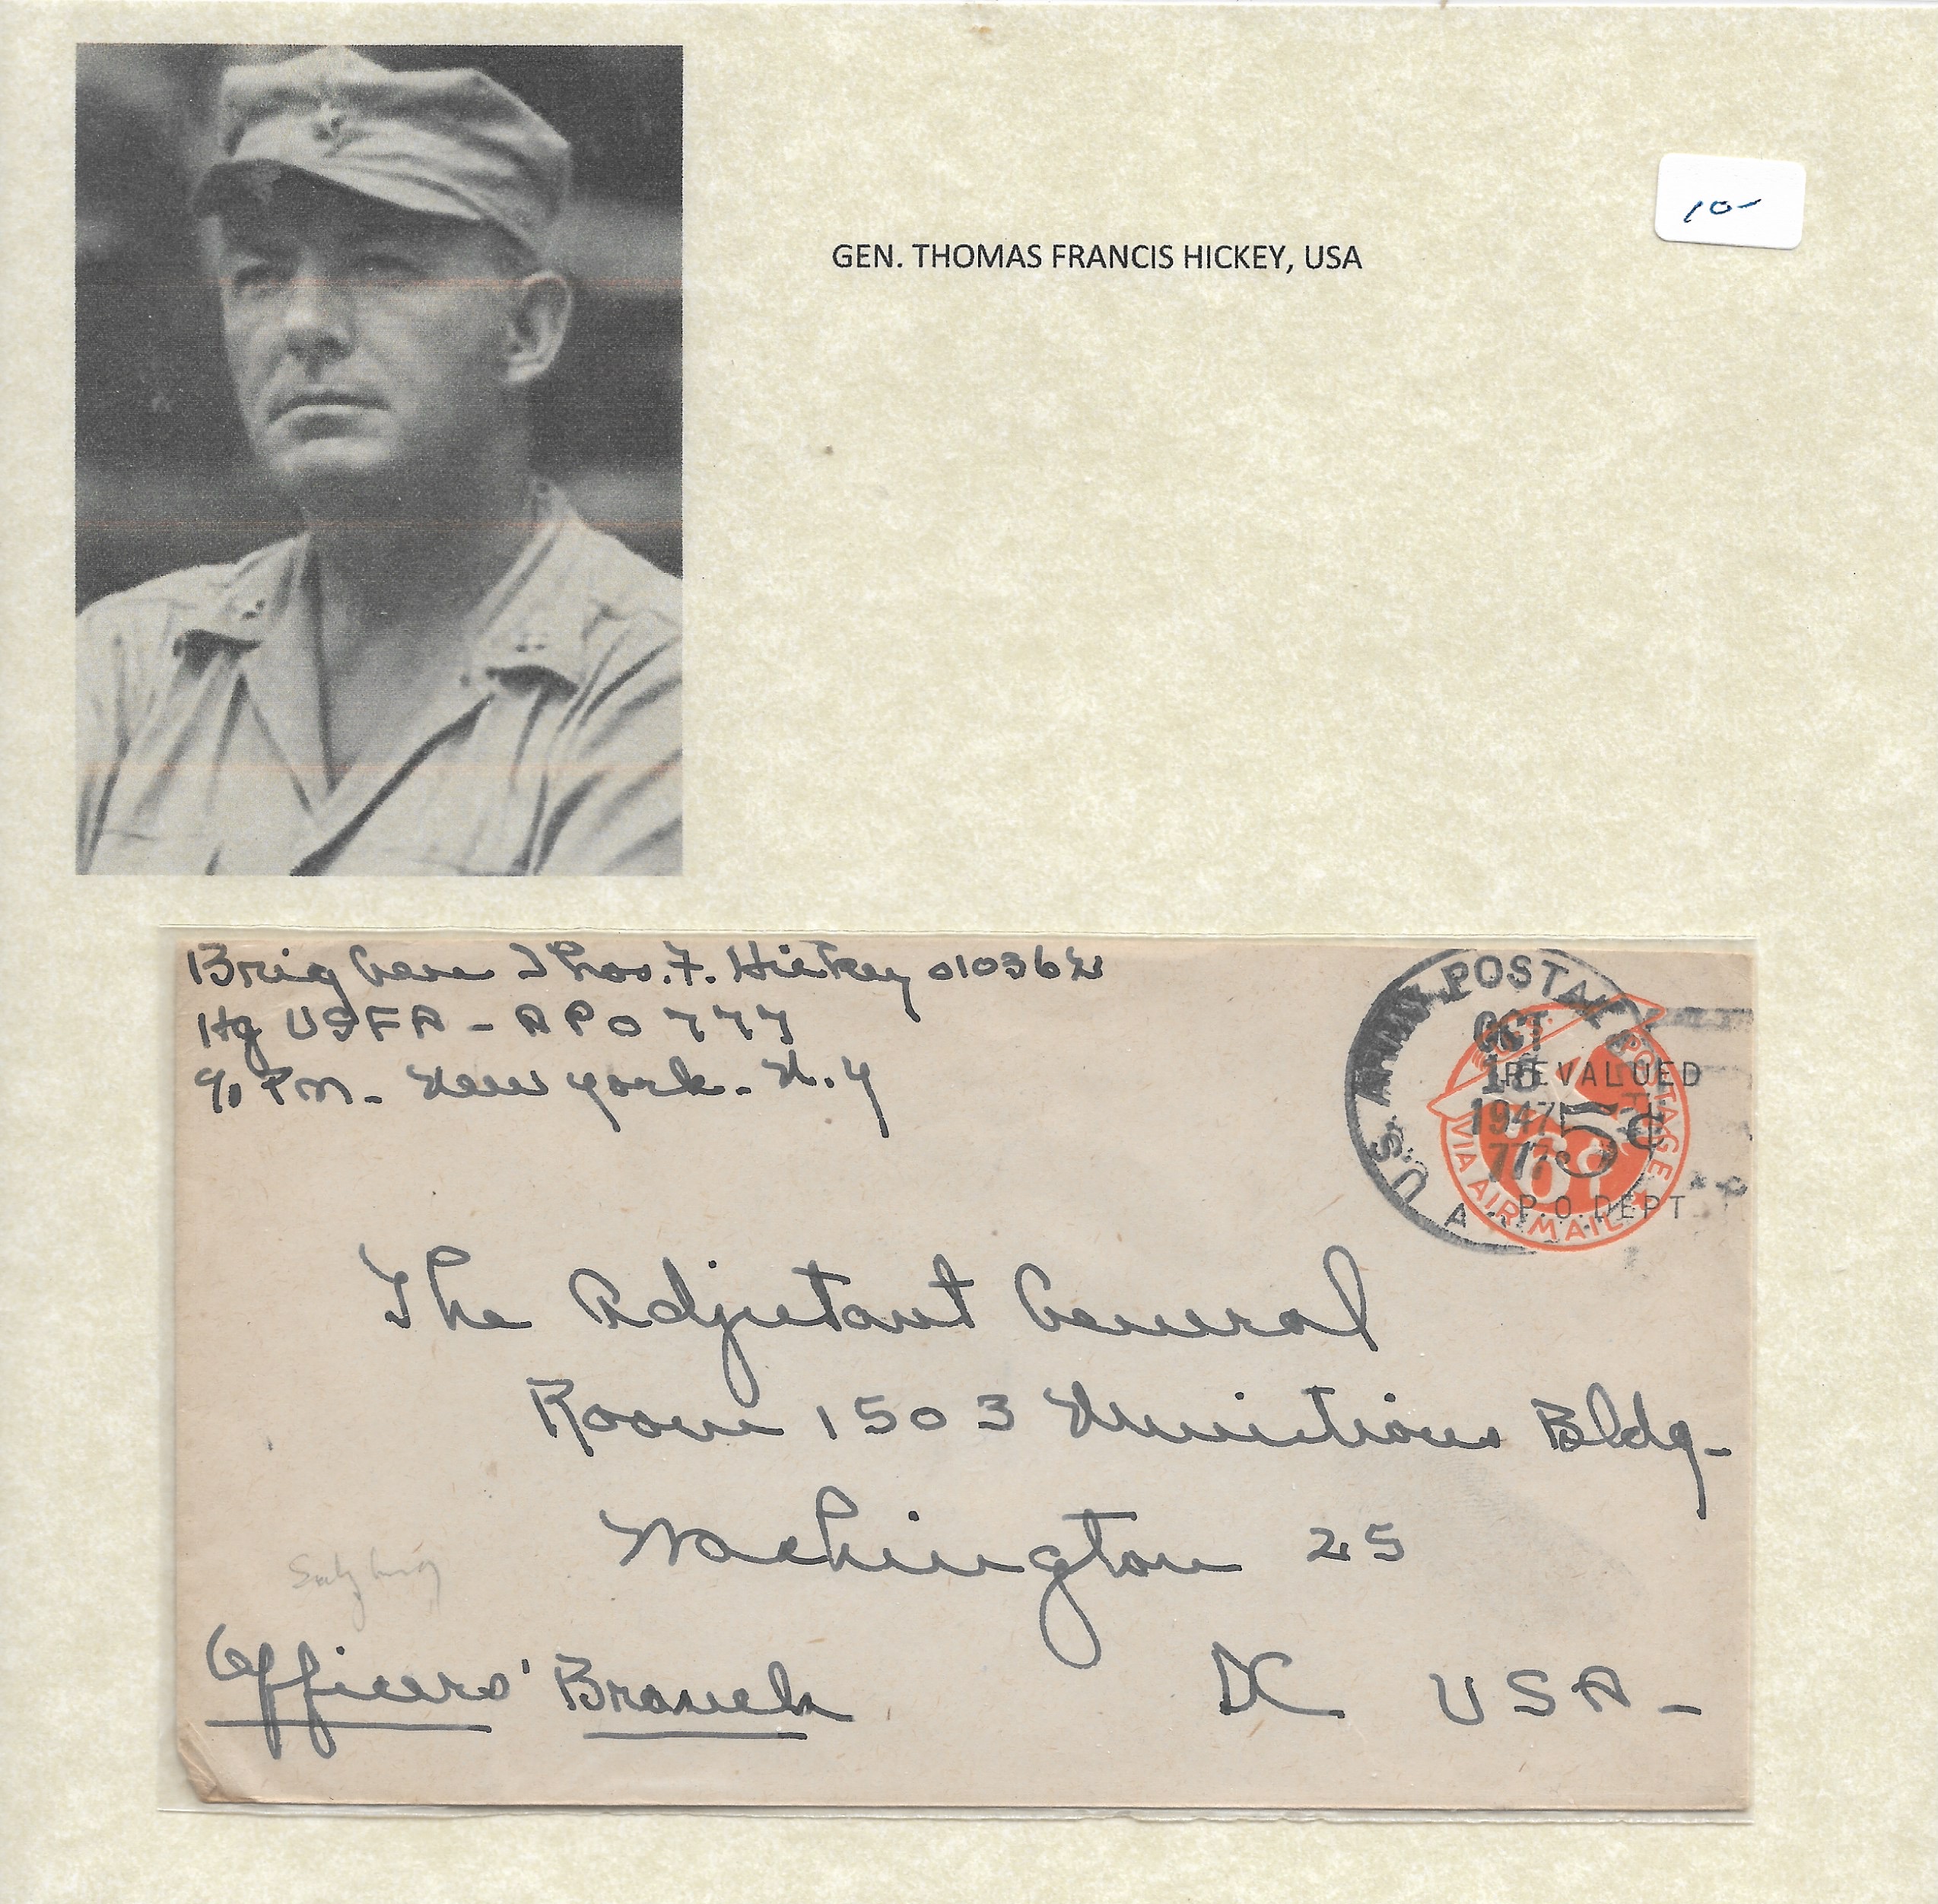 GEN. THOMAS FRANCIS HICKEY, USA
10-
Brig Gen Thos. F. Hickey 010362
Hq USFA - APO 777
c/o PM - New York - N.Y
U.S. ARMY POSTAL
OCT
18
1947
777
REVALUED
5¢
P.O. DEPT.
U.S. POSTAGE
6¢
VIA AIR MAIL
The Adjutant General
Room 1503 Munitions Bldg-
Washington 25
Salzburg
Officers' Branch
DC USA -